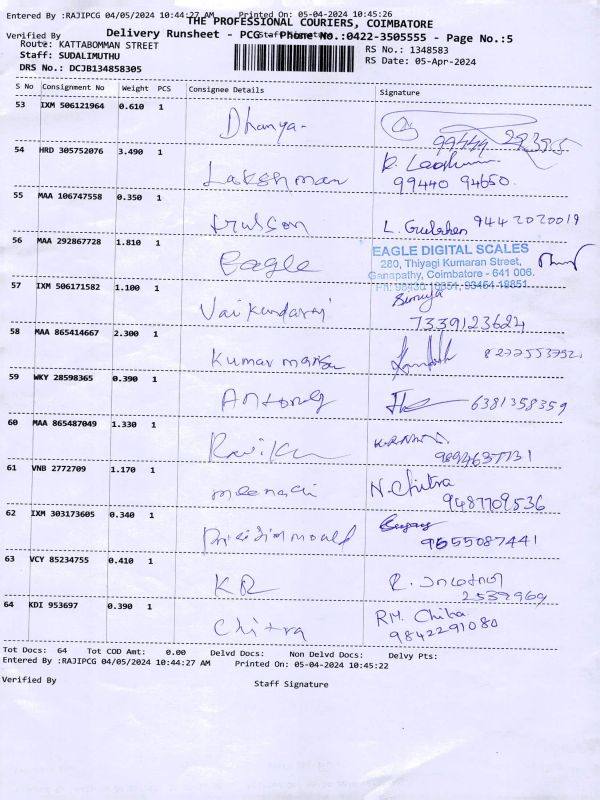 Entered By :RAJIPCG 04/05/2024 10:44:27 AM Printed On: 05-04-2024 10:45:26
THE PROFESSIONAL COURIERS, COIMBATORE
Verified By Staff Signature
Delivery Runsheet - PCG - Phone No.:0422-3505555 - Page No.:5
Route: KATTABOMMAN STREET RS No.: 1348583
Staff: SUDALIMUTHU RS Date: 05-Apr-2024
DRS No.: DCJB134858305
S No Consignment No Weight PCS Consignee Details Signature
53 IXM 506121964 0.610 1 Dhanya-
54 HRD 305752076 3.490 1 Lakshman
99440 94650.
55 MAA 106747558 0.350 1 9442020019
56 MAA 292867728 1.810 1 Eagle
EAGLE DIGITAL SCALES
280, Thiyagi Kumaran Street,
Ganapathy, Coimbatore - 641 006.
57 IXM 506171582 1.100 1 Vaikundaraj
7339123624
58 MAA 865414667 2.300 1 Kumar
59 WKY 28598365 0.390 1 Antony 6381358359
60 MAA 865487049 1.330 1
9894637731
61 VNB 2772709 1.170 1 N. Chitra
9487709536
62 IXM 303173605 0.340 1
9655087441
63 VCY 85234755 0.410 1 KR
2539969
64 KDI 953697 0.390 1 Chitra RM. Chitra
9842291080
Tot Docs: 64 Tot COD Amt: 0.00 Delvd Docs: Non Delvd Docs: Delvy Pts:
Entered By :RAJIPCG 04/05/2024 10:44:27 AM Printed On: 05-04-2024 10:45:22
Verified By Staff Signature